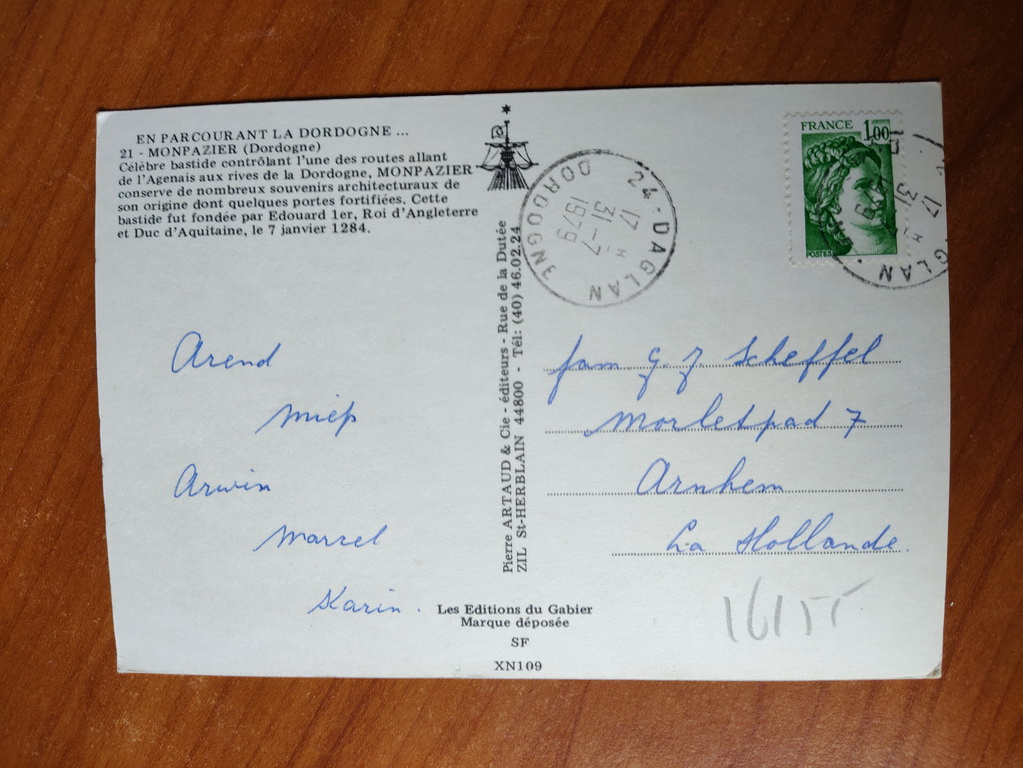 EN PARCOURANT LA DORDOGNE ...
21 - MONPAZIER (Dordogne)
Célèbre bastide contrôlant l'une des routes allant
de l'Agenais aux rives de la Dordogne, MONPAZIER
conserve de nombreux souvenirs architecturaux de
son origine dont quelques portes fortifiées. Cette
bastide fut fondée par Edouard 1er, Roi d'Angleterre
et Duc d'Aquitaine, le 7 janvier 1284.
Arend
Miep
Arwin
Marcel
Karin.
Pierre ARTAUD & Cie - éditeurs - Rue de la Dutée
ZIL St-HERBLAIN 44800 - Tél: (40) 46.02.24
Les Editions du Gabier
Marque déposée
SF
XN109
24 - DAGLAN
DORDOGNE
17 H
31-7
1979
FRANCE 1,00
POSTES
fam G. J. Scheffel
Morletpad 7
Arnhem
La Hollande.